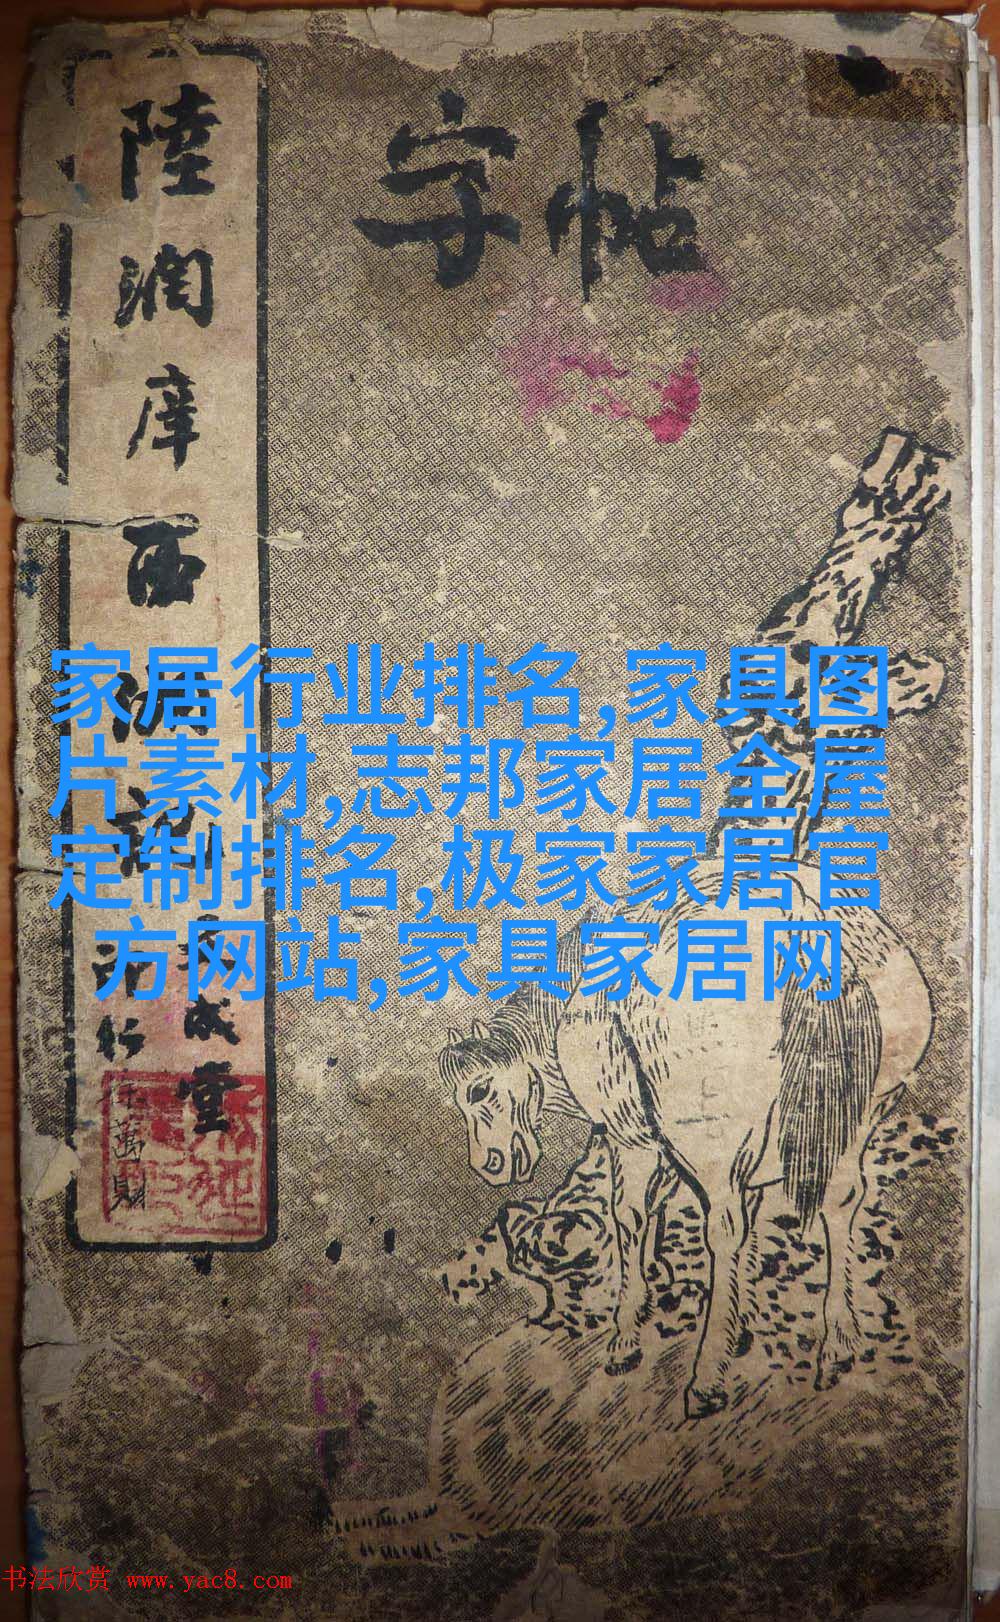 字帖
陸润庠西湖記
大成堂
印行
徐萬財
家居行业排名,家具图
片素材,志邦家居全屋
定制排名,极家家居官
方网站,家具家居网
书法欣赏 www.yac8.com